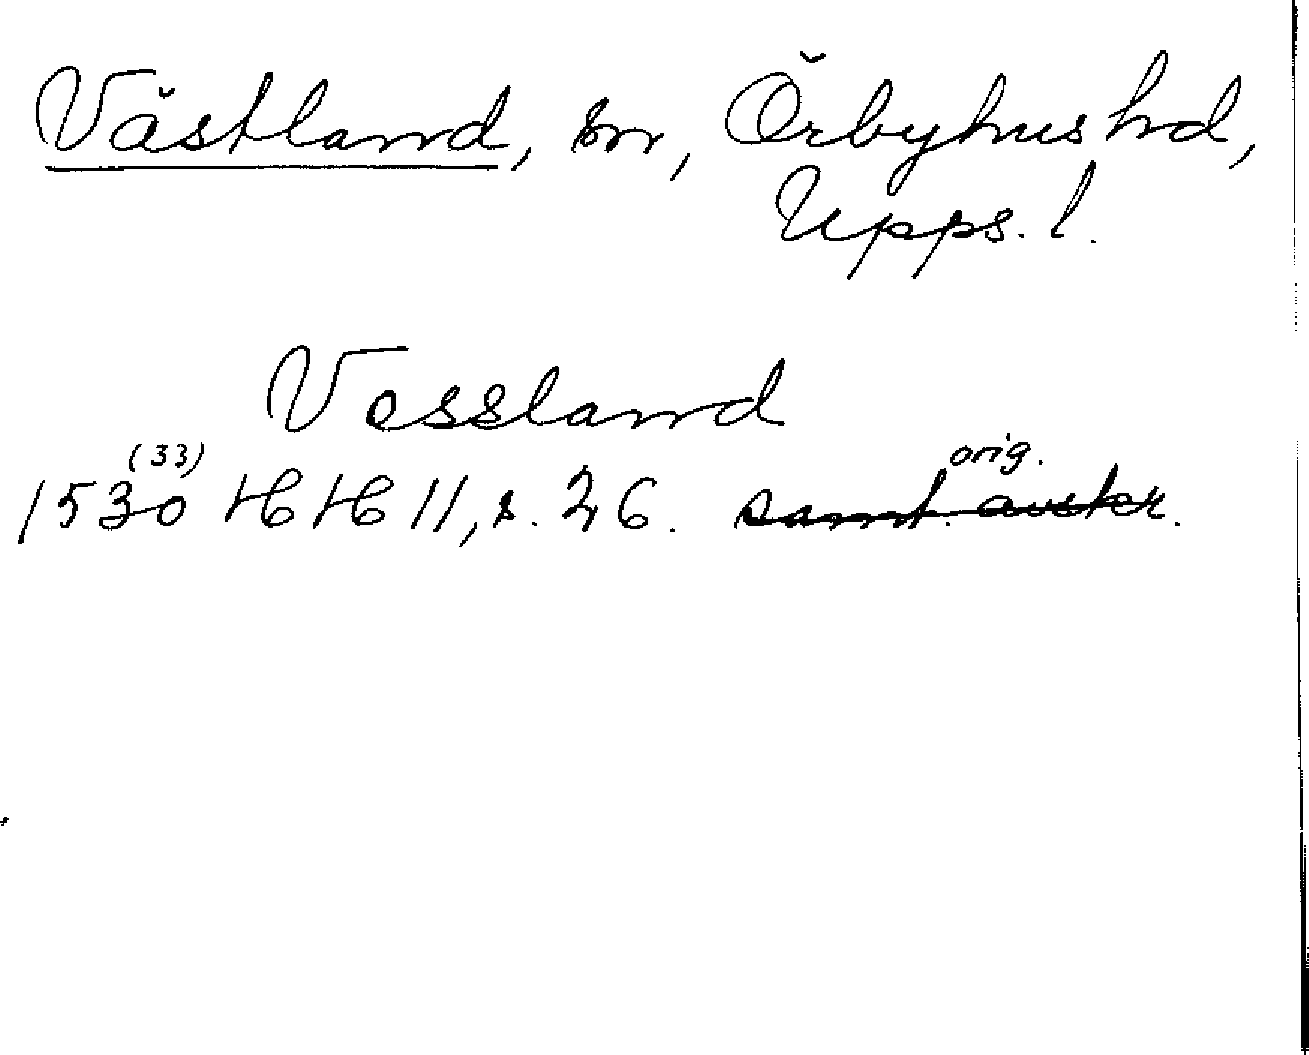 Västland, sn, Örbyhus hd,
Upps. l.
Vessland
(33) orig.
1530 HH 11, s. 26. samt. avskr.